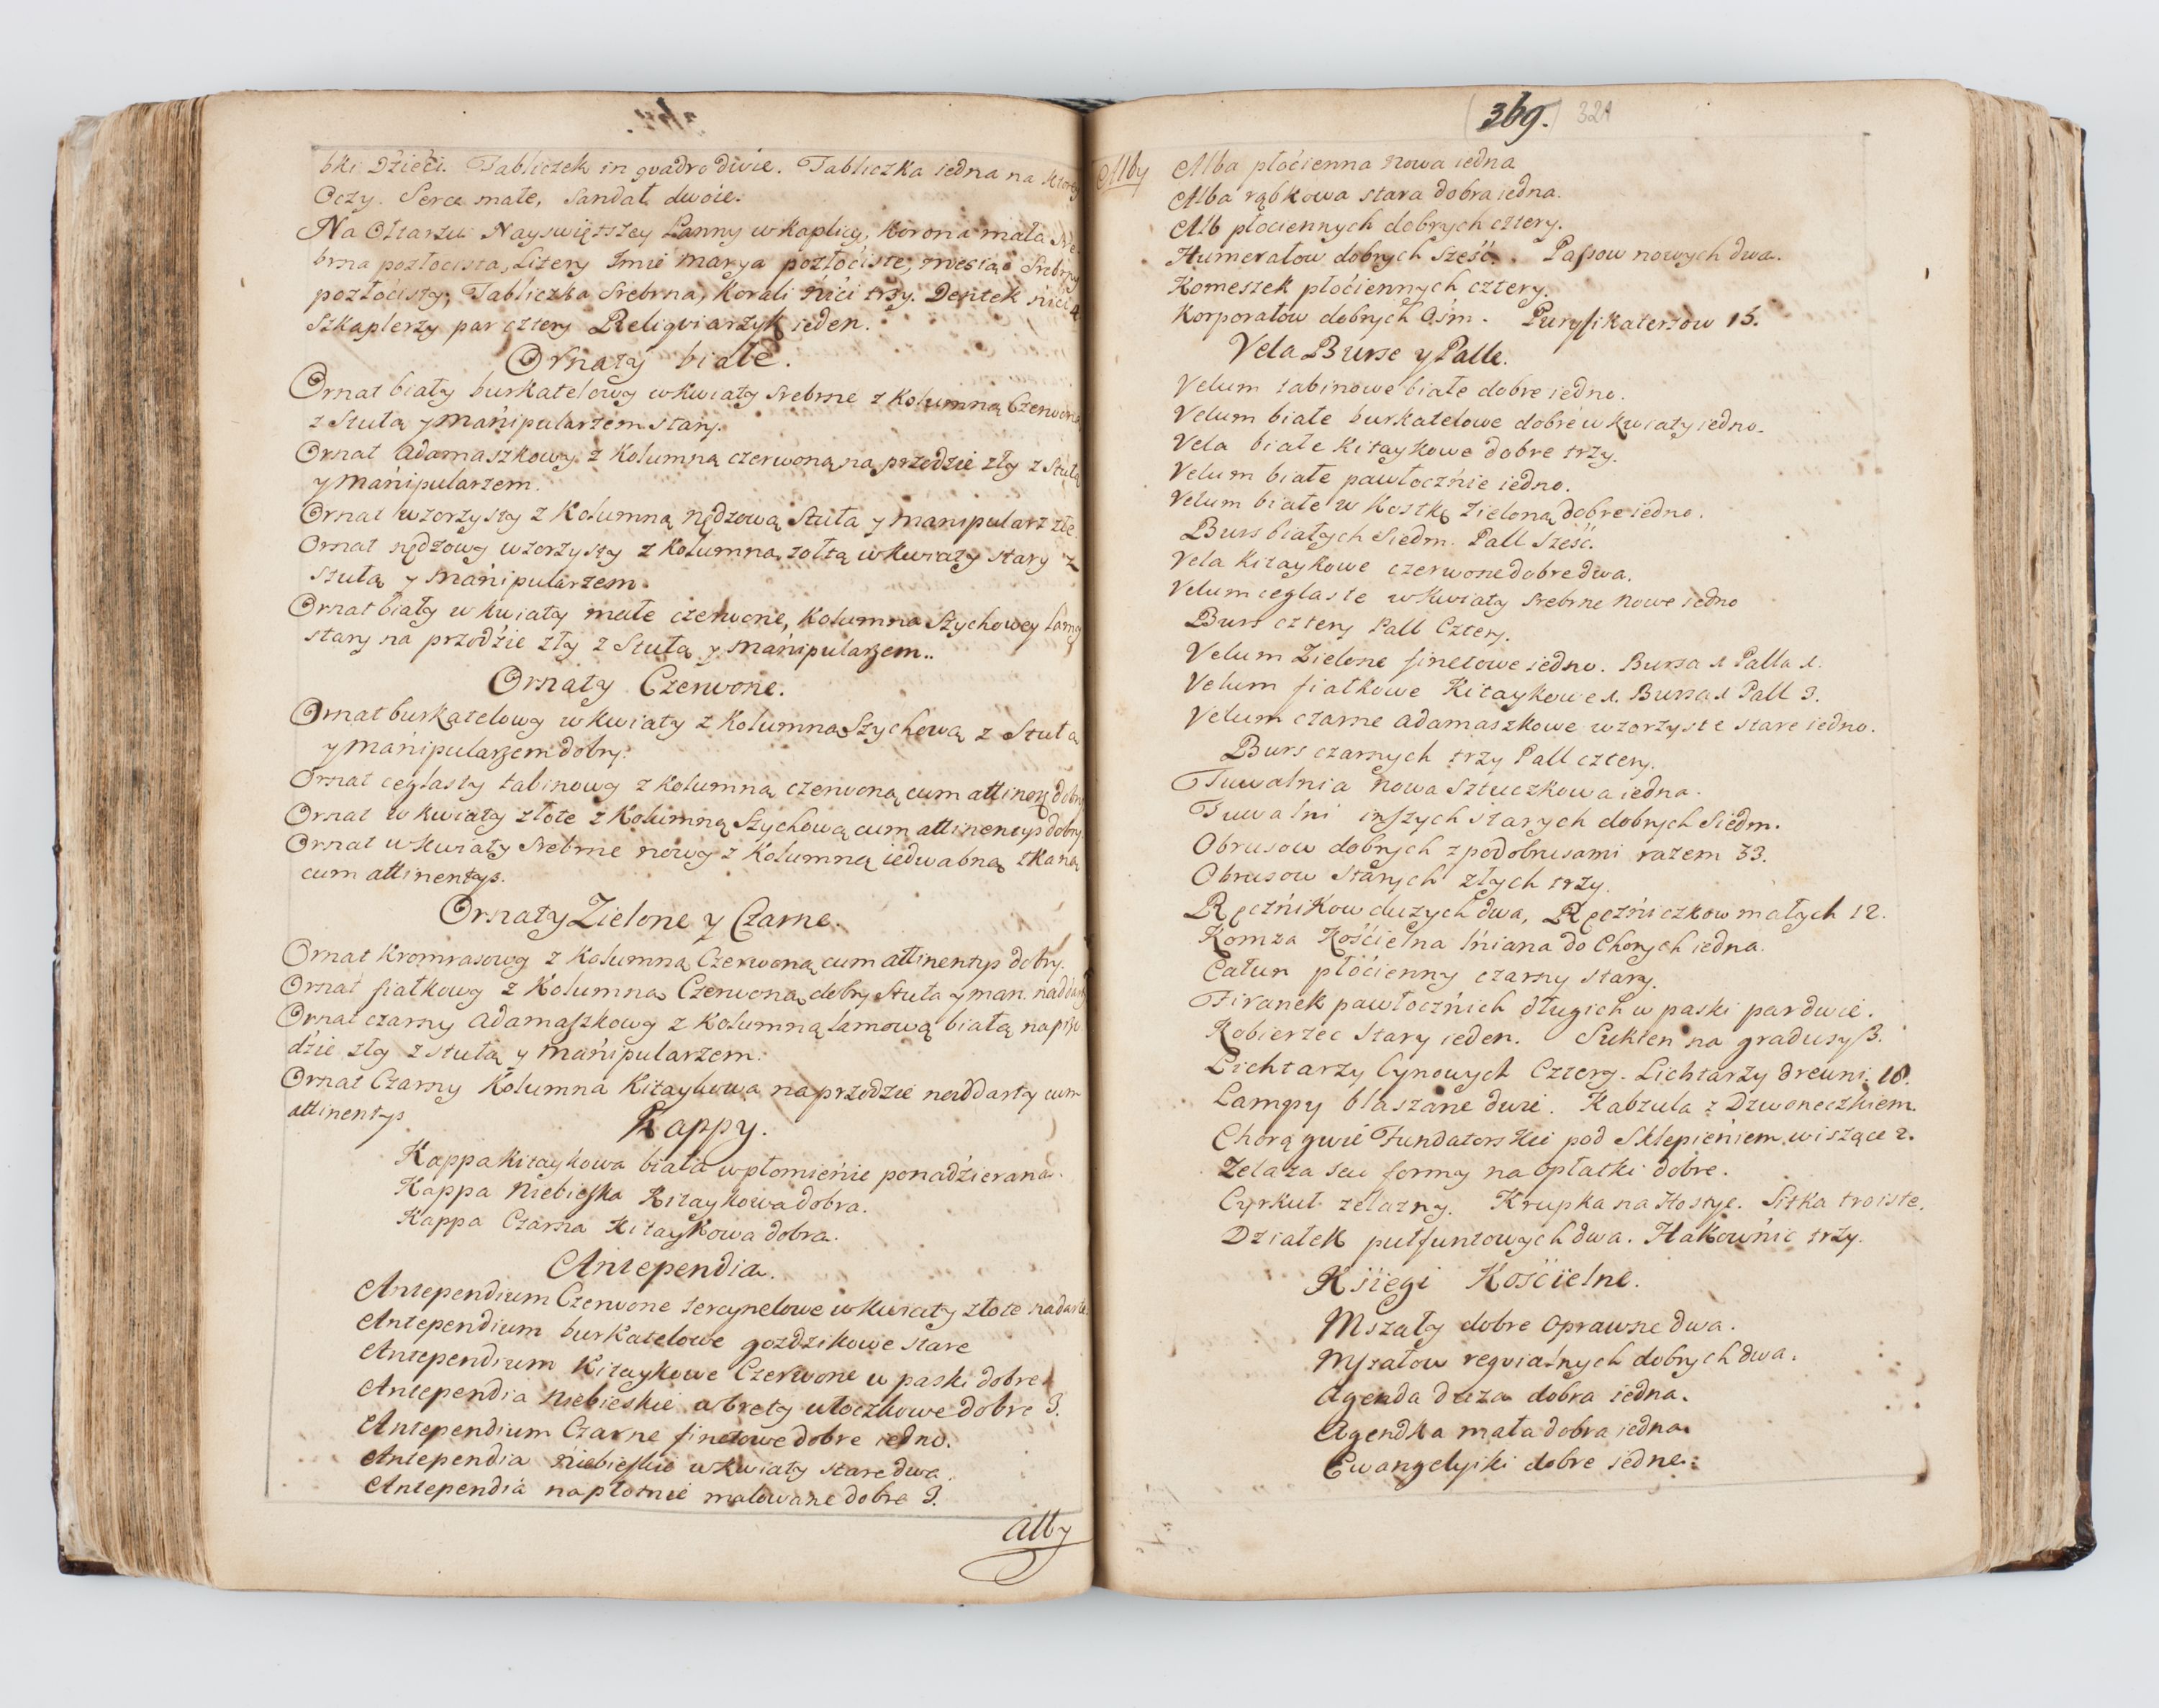 bki Dzieci. Tabliczek in qvadro dwie. Tabliczka iedna na ktorey
Oczy. Serce małe, Sandał dwoie.
Na Ołtarzu Nayświętszey Panny w Kaplicy, Korona mała Sre-
brna pozłocista, Litery Jmie Marya pozłociste, miesiąc Srebrny
pozłócisty, Tabliczka Srebrna, Korali nici trzy. Dentek nici 4
Szkaplerzy par cztery Reliqviarzyk ieden.
Ornaty białe.
Ornat biały burkatelowy w kwiaty srebrne z Kolumną Czerwoną
z Stułą y Manipularzem stary.
Ornat Adamaszkowy z Kolumną czerwoną na przodzie zły z Stułą
y Manipularzem.
Ornat wzorzysty z Kolumną rędzową Stuła y manipularz złe
Ornat rędzowy wzorzysty z Kolumną żołtą w kwiaty stary z
stułą y Manipularzem.
Ornat biały w kwiaty małe czerwone, Kolumna Szychowey Lamy
stary na przodzie zły z Stułą y Manipularzem..
Ornaty Czerwone.
Ornat burkatelowy w kwiaty z Kolumną Szychową z Stułą
y Manipularzem dobry.
Ornat ceglasty tabinowy z kolumną czerwoną cum attinen: dobry
Ornat w kwiaty złote z Kolumną Szychową cum attinentys dobry.
Ornat w kwiaty Srebrne nowy z Kolumną iedwabną tkaną
cum attinentys.
Ornaty Zielone y Czarne.
Ornat Kromrasowy z Kolumną Czerwoną cum attinentys dobry.
Ornat fiałkowy z Kolumną Czerwoną dobry Stuła y man. naddarty
Ornat czarny Adamaszkowy z Kolumną Lamową białą na przo-
dzie zły z stułą y Manipularzem.
Ornat Czarny Kolumna Kitaykowa na przodzie naddarty cum
attinentys
Kappy.
Kappa kitaykowa biała w płomienie ponadzierana.
Kappa Niebieska Kitaykowa dobra.
Kappa Czarna Kitaykowa dobra.
Antependia.
Antependium Czerwone tercynelowe w kwiaty złote nadarte
Antependium burkatelowe gozdzikowe stare
Antependium Kitaykowe Czerwone w paski dobre
Antependia Niebieskie w brety włoczkowe dobre 3.
Antependium Czarne finetowe dobre iedno.
Antependia Niebieskie w kwiaty stare dwa.
Antependia na płotnie malowane dobre 3.
Alby
369. 321
Alby
Alba płócienna nowa iedna
Alba rąbkowa stara dobra iedna.
Alb płociennych dobrych cztery.
Humerałow dobrych Sześć. Pasow nowych dwa.
Komeszek płóciennych cztery.
Korporałow dobrych Ośm. Puryfikaterzow 15.
Vela Burse y Palle.
Velum tabinowe białe dobre iedno.
Velum białe burkatelowe dobre w kwiaty iedno.
Vela białe Kitaykowe dobre trzy.
Velum białe pawłocznie iedno.
Velum białe w Kostkę zieloną dobre iedno.
Burs białych Siedm. Pall Sześć.
Vela Kitaykowe czerwone dobre dwa.
Velum ceglaste w kwiaty srebrne nowe iedno
Burs cztery Pall Cztery.
Velum Zielone finetowe iedno. Bursa 1. Palla 1.
Velum fiałkowe Kitaykowe 1. Bursa 1 Pall 3.
Velum czarne adamaszkowe wzorzyste stare iedno.
Burs czarnych trzy Pall cztery.
Tuwalnia nowa Sztuczkowa iedna.
Tuwalni inszych starych dobrych Siedm.
Obrusow dobrych z podobrusami razem 33.
Obrusow Starych złych trzy.
Ręcznikow duzych dwa, Ręczniczkow małych 12.
Komza Kościelna lniana do Chorych iedna.
Całun płócienny czarny stary.
Firanek pawłocznich długich w paski par dwie.
Kobierzec Stary ieden. Sukien na gradusy 3.
Lichtarzy Cynowych Cztery. Lichtarzy drewni. 10.
Lampy blaszane dwie. Kabzula z Dzwoneczkiem.
Chorągwie Fundatorskie pod Sklepieniem wiszące 2.
Zelaza seu formy na opłatki dobre.
Cyrkuł zelazny. Krupka na Hostye. Sitka troiste.
Działek pułfuntowych dwa. Hakownic trzy.
Księgi Kościelne.
Mszały dobre oprawne dwa.
Mszałow reqvialnych dobrych dwa.
Agenda duza dobra iedna.
Agendka mała dobra iedna.
Ewangelyiki dobre iedne.